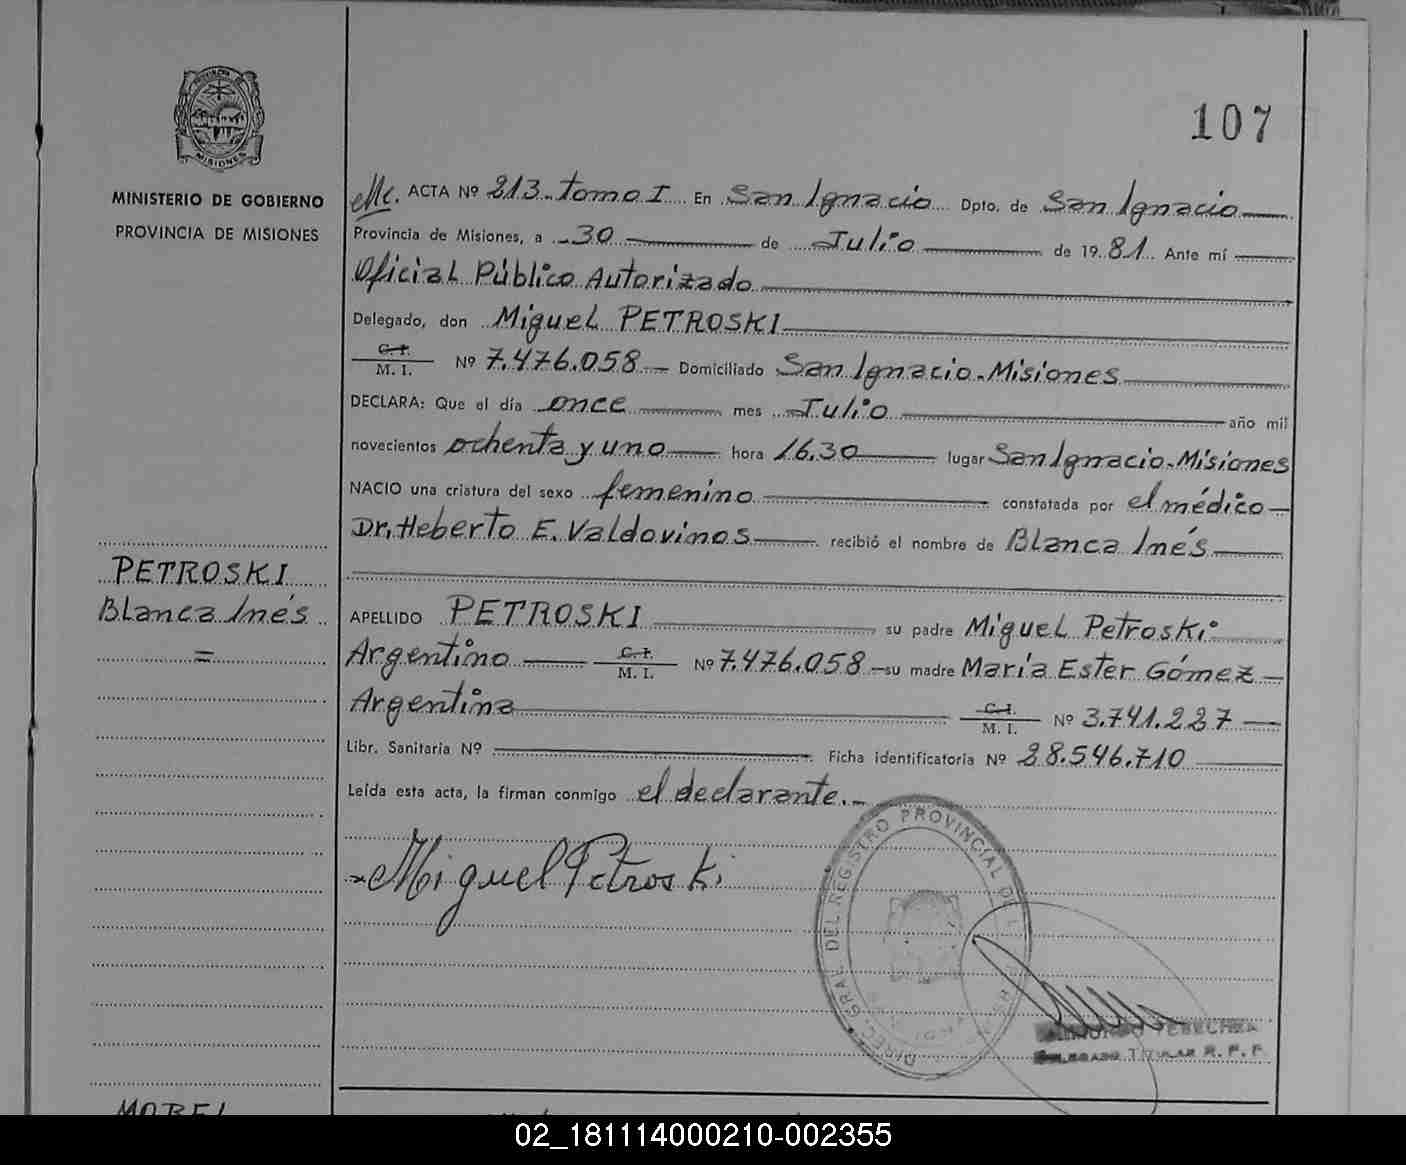 107
PROVINCIA DE
MISIONES
MINISTERIO DE GOBIERNO
PROVINCIA DE MISIONES
ACTA Nº 213. Tomo I En San Ignacio Dpto. de San Ignacio
Provincia de Misiones, a 30 de Julio de 1981. Ante mí
Oficial Público Autorizado
Delegado, don Miguel PETROSKI
C. I.
M. I. Nº 7.476.058 Domiciliado San Ignacio. Misiones
DECLARA: Que el día once mes Julio año mil
novecientos ochenta y uno hora 16.30 lugar San Ignacio. Misiones
NACIO una criatura del sexo femenino constatada por el médico
Dr. Heberto E. Valdovinos recibió el nombre de Blanca Inés
PETROSKI
Blanca Inés
=
APELLIDO PETROSKI su padre Miguel Petroski
Argentino C. I.
M. I. Nº 7.476.058 su madre María Ester Gómez
Argentina C. I.
M. I. Nº 3.741.227
Libr. Sanitaria Nº Ficha identificatoria Nº 28.546.710
Leída esta acta, la firman conmigo el declarante.
Miguel Petroski
DIREC. GRAL. DEL REGISTRO PROVINCIAL DE
DELEGADO TITULAR R. P. P.
MOREL
02_181114000210-002355